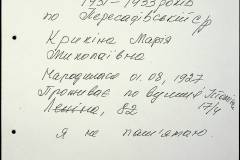 1931-1933 років
по Пересадівській с/р
Крикіна Марія
Миколаївна
Народилася 01.08, 1927
Проживає по вулиці
Леніна, 82 17/4
Я не пам'ятаю.